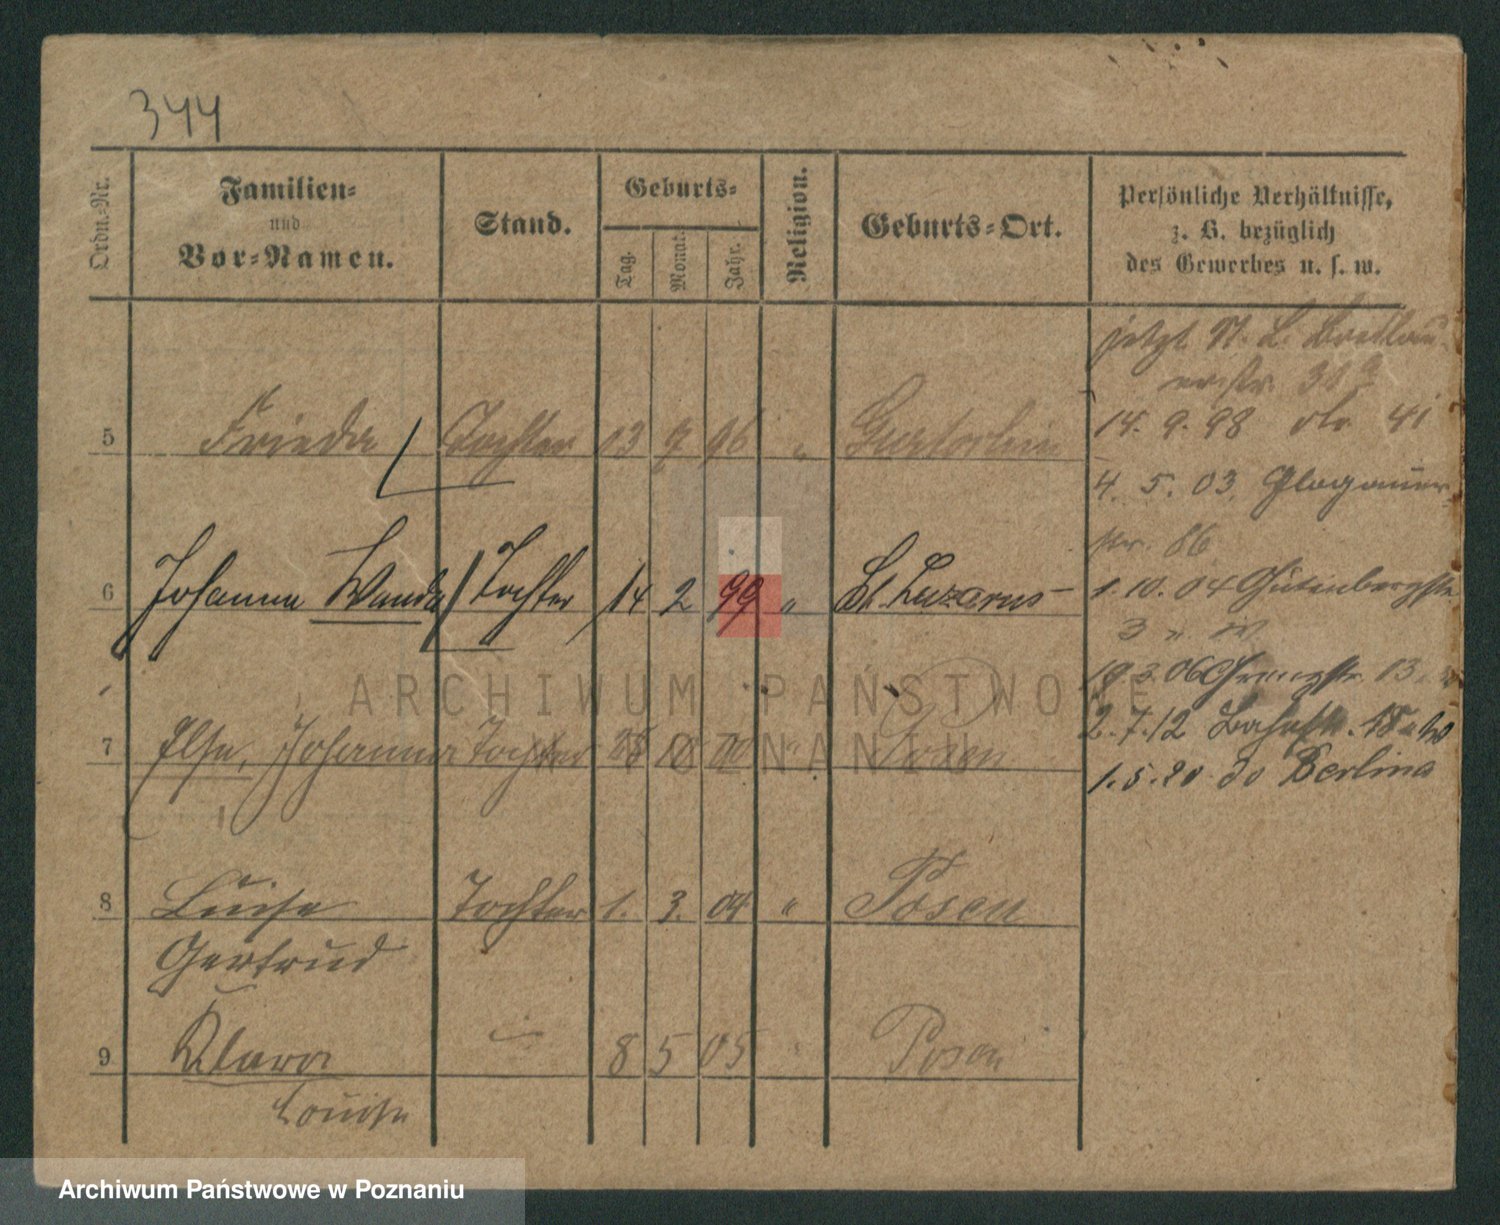 344
Ordn.-Nr.
Familien-
und
Vor-Namen.
Stand.
Geburts-
Tag.
Monat.
Jahr.
Religion.
Geburts-Ort.
Persönliche Verhältnisse,
z. B. bezüglich
des Gewerbes u. s. w.
jetzt St. L.
31a
5 Frieda Tochter 03 9 96 "
14. 9. 98 do 41
4. 5. 03. Glogauer
str. 86
6 Johanna Wanda Tochter 14 2 99 " St. Lazarus
1. 10. 04 Gutenbergstr.
3
19. 3. 06 13
7 Else, Johanna Tochter 00 " Posen
2. 7. 12 18
1. 5. 20 do Berlina
8 Luise Tochter 1. 3. 04 " Posen
Gertrud
9 Klara 8 5 05 Posen
Louise
ARCHIWUM PAŃSTWOWE
W POZNANIU
Archiwum Państwowe w Poznaniu